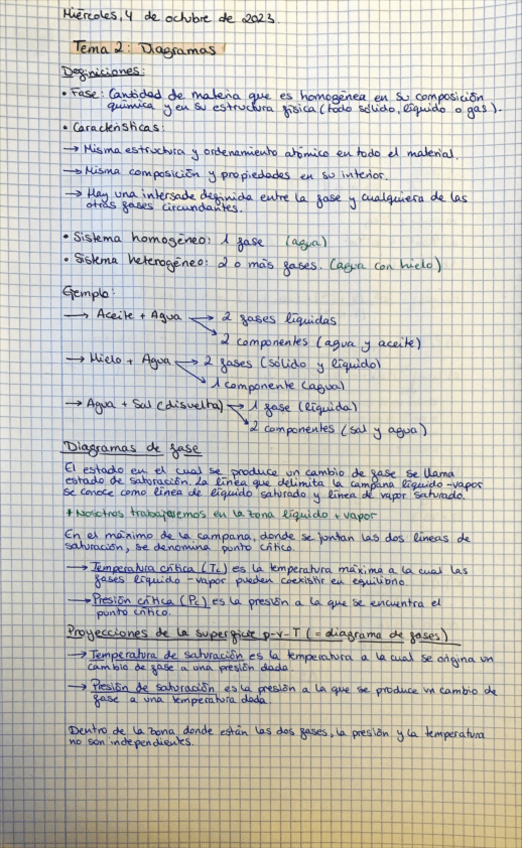 Miércoles, 4 de octubre de 2023.
Tema 2: Diagramas
Definiciones:
• Fase: Cantidad de materia que es homogénea en su composición
química y en su estructura física (todo sólido, líquido o gas).
• Características:
→ Misma estructura y ordenamiento atómico en todo el material.
→ Misma composición y propiedades en su interior.
→ Hay una interfase definida entre la fase y cualquiera de las
otras fases circundantes.
• Sistema homogéneo: 1 fase (agua)
• Sistema heterogéneo: 2 o más fases. (agua con hielo)
Ejemplo:
→ Aceite + Agua → 2 fases líquidas
↘ 2 componentes (agua y aceite)
→ Hielo + Agua → 2 fases (sólido y líquido)
↘ 1 componente (agua)
→ Agua + Sal (disuelta) → 1 fase (líquida)
↘ 2 componentes (sal y agua)
Diagramas de fase
El estado en el cual se produce un cambio de fase se llama
estado de saturación. La línea que delimita la campana líquido-vapor
se conoce como línea de líquido saturado y línea de vapor saturado.
* Nosotros trabajaremos en la zona líquido + vapor
En el máximo de la campana, donde se juntan las dos líneas de
saturación, se denomina punto crítico.
→ Temperatura crítica (Tc) es la temperatura máxima a la cual las
fases líquido-vapor pueden coexistir en equilibrio
→ Presión crítica (Pc) es la presión a la que se encuentra el
punto crítico.
Proyecciones de la superficie p-v-T (= diagrama de fases)
→ Temperatura de saturación es la temperatura a la cual se origina un
cambio de fase a una presión dada.
→ Presión de saturación es la presión a la que se produce un cambio de
fase a una temperatura dada.
Dentro de la zona donde están las dos fases, la presión y la temperatura
no son independientes.